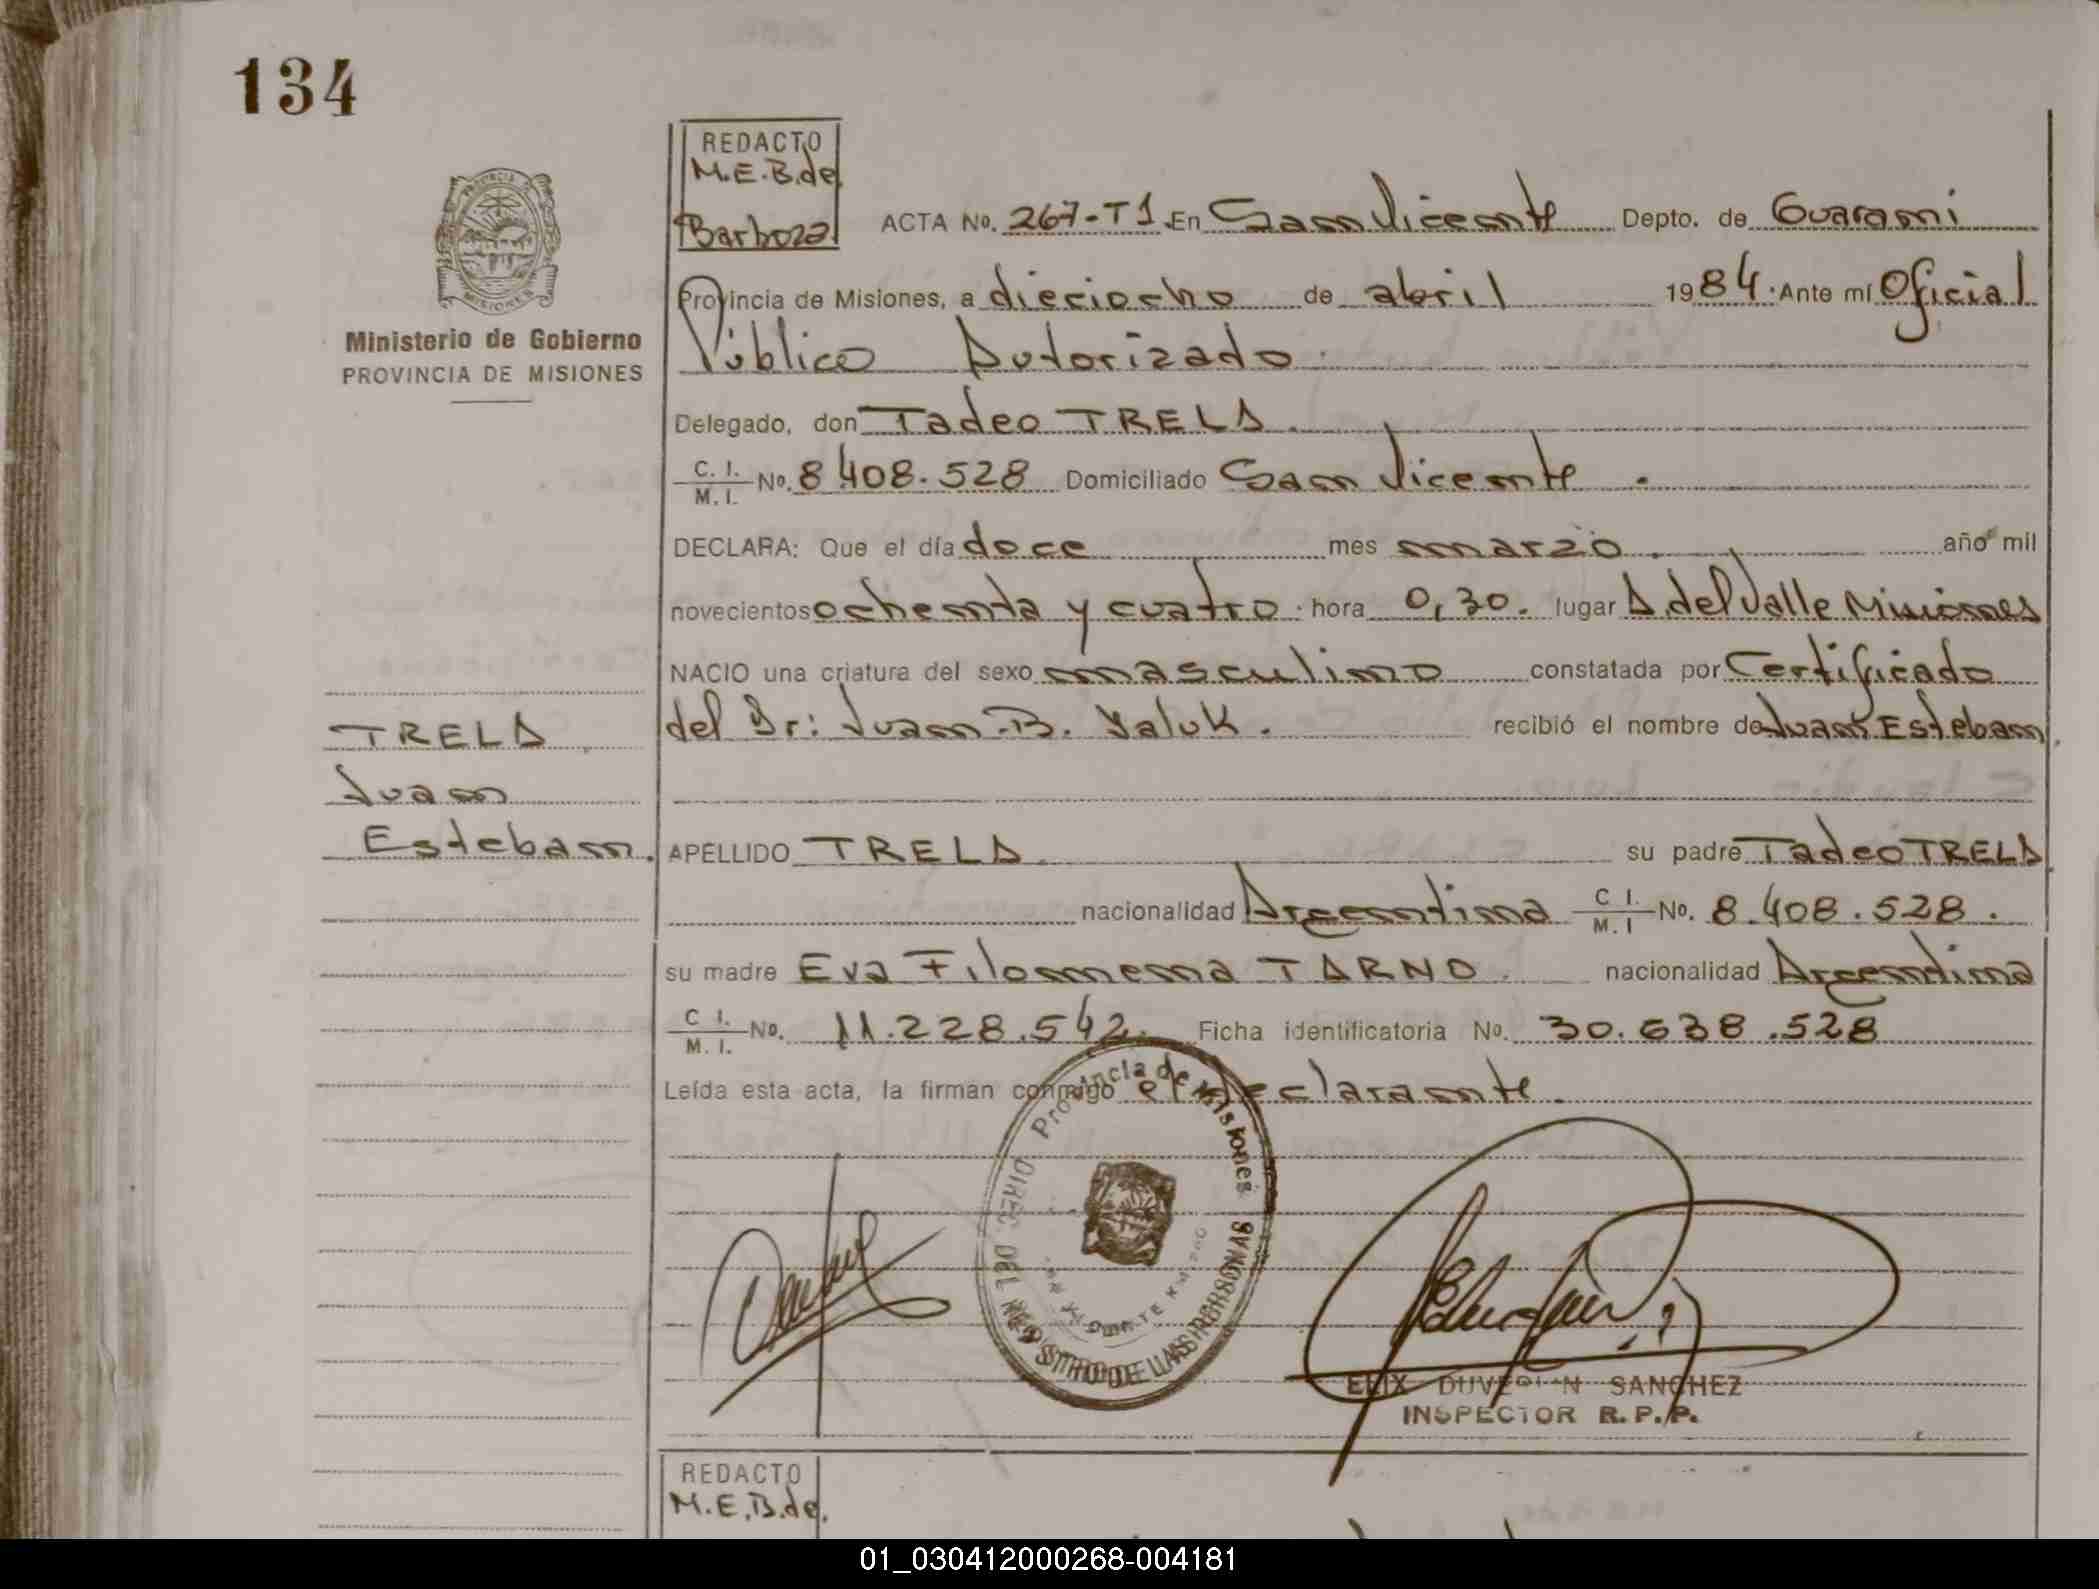 134
REDACTO
M.E.B.de
Barboza
ACTA No. 267-T1 En San Vicente Depto. de Guarani
Provincia de Misiones, a dieciocho de abril 1984. Ante mí Oficial
Público Autorizado.
Ministerio de Gobierno
PROVINCIA DE MISIONES
Delegado, don Tadeo TRELA.
C. I. / M. I. No. 8408.528 Domiciliado San Vicente.
DECLARA: Que el día doce mes marzo. año mil
novecientos ochenta y cuatro. hora 0,30. lugar A. del Valle Misiones
NACIO una criatura del sexo masculino constatada por Certificado
del Dr: Juan B. Yaluk. recibió el nombre de Juan Esteban.
TRELA
Juan
Esteban.
APELLIDO TRELA su padre Tadeo TRELA
nacionalidad Argentina C I. / M. I No. 8.408.528.
su madre Eva Filomena TARNO. nacionalidad Argentina
C I. / M. I. No. 11.228.542. Ficha identificatoria No. 30.638.528
Leída esta acta, la firman conmigo el declarante.
Provincia de Misiones
DIREC. DEL REGISTRO DE LAS PERSONAS
SANCHEZ
INSPECTOR R.P.P.
REDACTO
M.E.B.de.
01_030412000268-004181